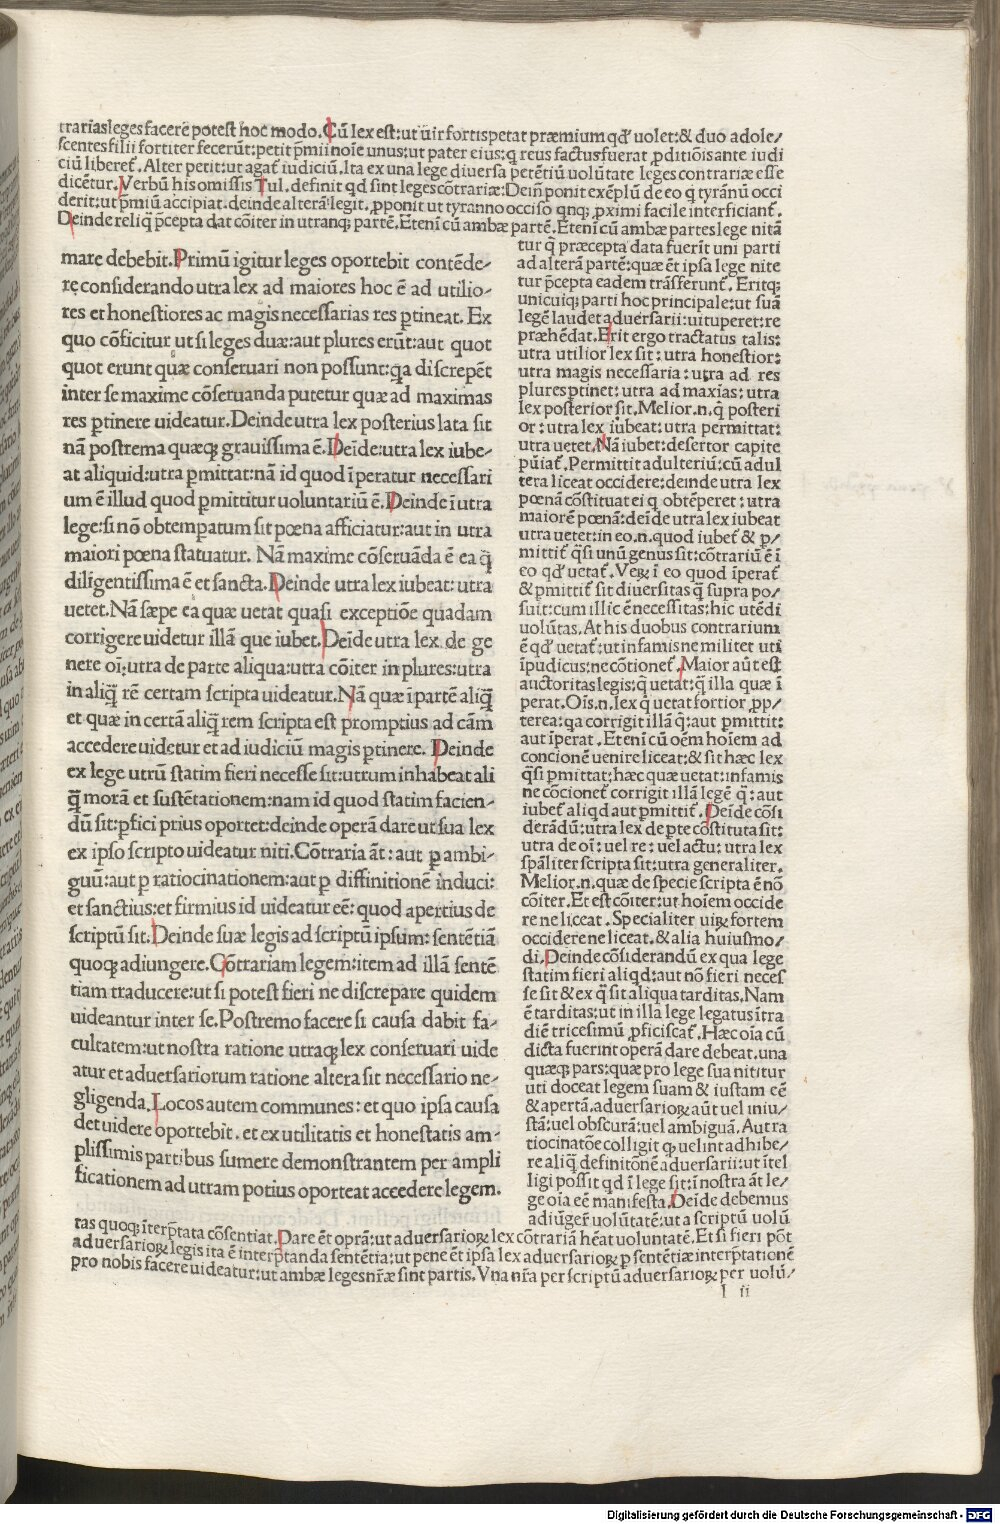 trariasleges facere potest hoc modo. Cū lex est: ut uir fortis petat præmium qđ uolet: & duo adole/
scentes filii fortiter fecerūt: petit p̄mii noīe unus: ut pater eius: q̨ reus factus fuerat ꝓditiōis ante iudi
ciū liberet̃. Alter petit: ut agat̃ iudiciū. Ita ex una lege diuersa petētiū uolūtate leges contrariæ esse
dicētur. Verbū his omissis Tul. definit qđ sint leges cōtrariæ: Dein̄ ponit exēplū de eo q̨ tyrānū occi
derit: ut p̄miū accipiat. deinde alterā legit. ꝓponit ut tyranno occiso qnq; ꝓximi facile interficiant̃.
Deinde reliq̄ p̄cepta dat cōiter in utranq; partē. Etenī cū ambæ partē. Etenī cū ambæ partes lege nitā
mare debebit. Primū igitur leges oportebit contēde-
re considerando utra lex ad maiores hoc ē ad utilio-
res et honestiores ac magis necessarias res ꝑtineat. Ex
quo cōficitur ut si leges duæ: aut plures erūt: aut quot
quot erunt quæ conseruari non possunt: q̨a discrepēt
inter se maxime cōseruanda putetur quæ ad maximas
res ꝑtinere uideatur. Deinde utra lex posterius lata sit
nā postrema quæq; grauissima ē. Deīde: utra lex iube-
at aliquid: utra ꝑmittat: nā id quod īperatur necessari
um ē illud quod ꝑmittitur uoluntariū ē. Deinde ī utra
lege: si nō obtemperatum sit pœna afficiatur: aut in utra
maiori pœna statuatur. Nā maxime cōseruāda ē ea q̄
diligentissima ē et sancta. Deinde utra lex iubeat: utra
uetet. Nā sæpe ea quæ uetat quasi exceptiōe quadam
corrigere uidetur illā que iubet. Deīde utra lex de ge
nere oī: utra de parte aliqua: utra cōiter in plures: utra
in aliq̄ rē certam scripta uideatur. Nā quæ ī partē aliq̄
et quæ in certā aliq̄ rem scripta est promptius ad cām
accedere uidetur et ad iudiciū magis ꝑtinere. Deinde
ex lege utrū statim fieri necesse sit: utrum inhabeat ali
q̄ morā et sustētationem: nam id quod statim facien-
dū sit: ꝑfici prius oportet: deinde operā dare ut sua lex
ex ipso scripto uideatur niti. Cōtraria āt: aut ꝑ ambi-
guū: aut ꝑ ratiocinationem: aut ꝑ diffinitionē induci:
et sanctius: et firmius id uideatur eē: quod apertius de
scriptū sit. Deinde suæ legis ad scriptū ipsum: sentētiā
quoq; adiungere. Cōtrariam legem: item ad illā sentē
tiam traducere: ut si potest fieri ne discrepare quidem
uideantur inter se. Postremo facere si causa dabit fa-
cultatem: ut nostra ratione utraq; lex conseruari uide
atur et aduersariorum ratione altera sit necessario ne-
gligenda. Locos autem communes: et quo ipsa causa
det uidere oportebit. et ex utilitatis et honestatis am-
plissimis partibus sumere demonstrantem per ampli
ficationem ad utram potius oporteat accedere legem.
tur q̄ præcepta data fuerīt uni parti
ad alterā partē: quæ ēt ipsa lege nite
tur p̄cepta eadem trāsferunt̃. Eritq;
unicuiq; parti hoc principale: ut suā
legē laudet aduersarii: uituperet: re
præhēdat. Erit ergo tractatus talis:
utra utilior lex sit: utra honestior:
utra magis necessaria: utra ad res
plures ꝑtinet: utra ad maxīas: utra
lex posterior sit. Melior .n. q̄ posteri
or: utra lex iubeat: utra permittat:
utra uetet. Nā iubet: desertor capite
pūiat̃. Permittit adulteriū: cū adul
tera liceat occidere: deinde utra lex
pœnā cōstituat ei q̨ obtēperet: utra
maiorē pœnā: deīde utra lex iubeat
utra uetet: in eo .n. quod iubet̃ & ꝑ/
mittit̃ q̄si unū genus sit: cōtrariū ē ī
eo qđ uetat̃. Veꝝ ī eo quod īperat̃
& ꝑmittit̃ sit diuersitas q̄ supra po/
suit: cum illic ē necessitas: hic utēdi
uolūtas. At his duobus contrarium
ē qđ uetat̃: ut infamis ne militet uti
īpudicus: ne cōtionet̃. Maior aūt est
auctoritas legis: q̄ uetat: q̄ illa quæ ī
perat. Oīs .n. lex q̄ uetat fortior ꝓp/
terea: q̨a corrigit illā q̄: aut ꝑmittit:
aut īperat. Etenī cū oēm hoīem ad
concionē uenire liceat: & sit hæc lex
q̄si ꝑmittat: hæc quæ uetat: infamis
ne cōcionet̃ corrigit illā legē q̄: aut
iubet̃ aliqd aut ꝑmittit̃. Deīde cōsi
derādū: utra lex de ꝑte cōstituta sit:
utra de oī: uel re: uel actu: utra lex
sp̄aliter scripta sit: utra generaliter.
Melior .n. quæ de specie scripta ē nō
cōiter. Et est cōiter: ut hoīem occide
re ne liceat. Specialiter uiꝝ fortem
occidere ne liceat. & alia huiusmo/
di. Deinde cōsiderandū ex qua lege
statim fieri aliqd: aut nō fieri neces
se sit & ex q̄ sit aliqua tarditas. Nam
ē tarditas: ut in illa lege legatus ītra
diē tricesimū ꝓficiscat̃. Hæc oīa cū
dicta fuerint operā dare debeat. una
quæq; pars: quæ pro lege sua nititur
uti doceat legem suam & iustam eē
& apertā. aduersarioꝝ aūt uel iniu/
stā: uel obscurā: uel ambiguā. Aut ra
tiocinatōe colligit ꝙ uel int adhibe/
re aliq̄ definitōnē aduersarii: ut ītel
ligi possit qđ ī lege sit: ī nostra āt le/
ge oīa eē manifesta. Deīde debemus
adiūger̄ uolūtatē: ut a scriptū uolū
tas quoq; īterp̄tata cōsentiat. Dare ēt oprā: ut aduersarioꝝ lex cōtrariā hēat uoluntatē. Et si fieri pōt
aduersarioꝝ legis ita ē interp̄tanda sentētia: ut pene ēt ipsa lex aduersarioꝝ ꝑ sentētiæ interp̄tationē
pro nobis facere uideatur: ut ambæ leges nr̄æ sint partis. Vna nr̄a per scriptū aduersarioꝝ per uolū/
I ii
Digitalisierung gefördert durch die Deutsche Forschungsgemeinschaft - DFG